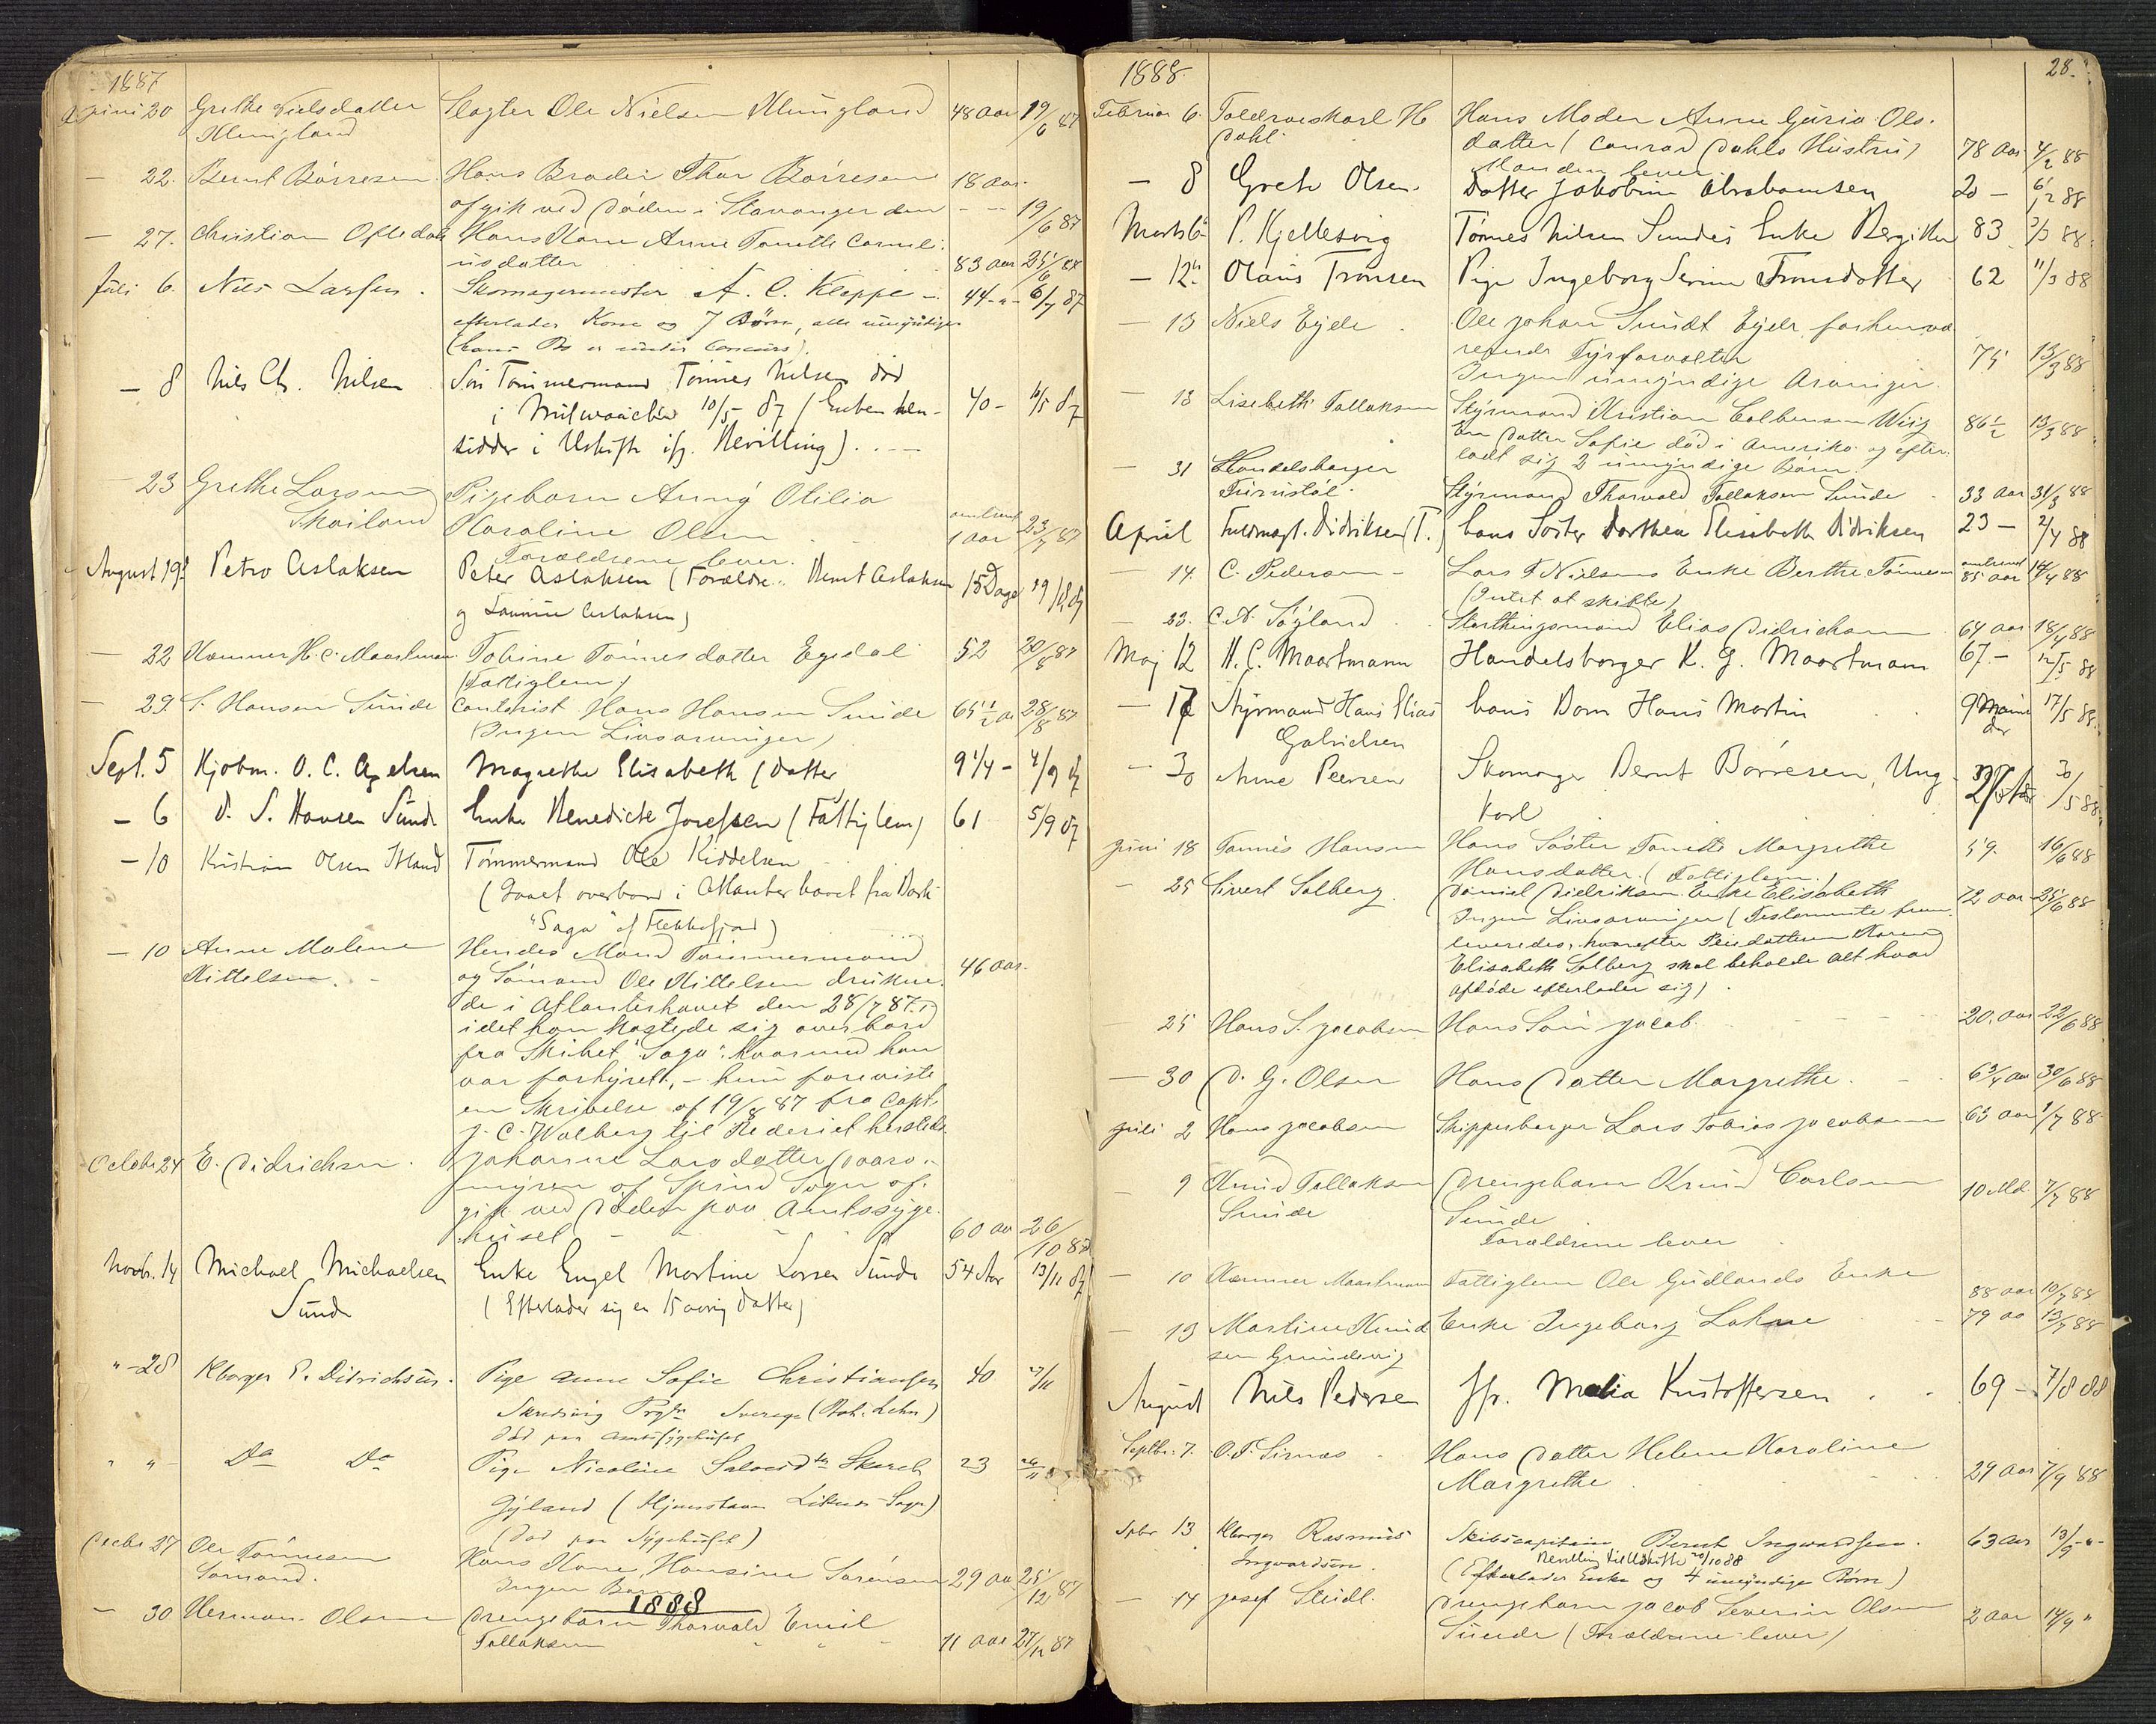 1887
Juni 20 Grethe Nielsdatter Slagter Ole Nielsen Klungland 48 Aar 19/6 87
Klungland
- 22. Bernt Börresen Hans Broder Thor Börresen 18 Aar
afgik ved Döden i Stavanger den - - 19/6 87
- 27. Christian Oftedal Hans Kone Anne Tonette Corneli-
usdatter 83 Aar 25/6
Juli 6. Nils Larsen. Skomagermester A. C. Kleppe - 44 - 6/7 87
efterlader Kone og 7 Börn, alle umyndige
(hans Bo er under Concurs).
- 8 Nils Ch. Nilsen Sön Tömmermand Tönnes Nilsen död
i Milwauckee 10/5 87 (Enken hen- 40 - 10/5 87
sidder i Uskifte ifg. Bevilling). . -
23 Grethe Larsen Pigebarn Anny Otilia
Skoiland Karoline Olsen omtrent 1 Aar 23/7 87
Forældrene lever.
August 19 Petro Aslaksen Peter Aslaksen (Forældre: Bernt Aslaksen 15 Dage 19/8 87
og Aslaksen)
- 22 Kæmner H. C. Maartmann Tobine Tönnesdatter Egedal 52 20/8 87
(Fattiglem)
- 29. S. Hansen Sunde Contorist Hans Hansen Sunde 65 1/2 Aar 28/8 87
(Ingen Livsarvinger)
Sept. 5 Kjöbm. O. C. Axelsen Magrethe Elisabeth (Datter 9 1/4 - 4/9 87
- 6 S. Hansen Sunde Enke Benedicte Josefsen (Fattiglem) 61 5/9 87
- 10 Kristian Olsen Tömmermand Ole Kiddelsen
(Gaaet overbord i Atlanterhavet fra Bark
"Saga" af Flekkefjord)
- 10 Anne Malene Hendes Mand Tömmermand
Kittelsen. og Sömand Ole Kittelsen drukne- 46 Aar.
de i Atlanterhavet den 28/7 87.
idet han kastede sig overbord
fra Skibet "Saga", hvormed han
var forhyret, - hun foreviste
en Skrivelse af 19/8 87 fra Capt.
J. C. Walberg til Rederiet hersteds
October 24 E. Didrichsen. Johanne Larsdatter
myren af Spind Sogn af-
gik ved Döden paa Amtssyge-
huset 60 Aar 26/10 87
Novbr. 14 Michael Michaelsen Enke Engel Martine Larsen Sunde 54 Aar 13/11 87
Sunde (Efterlader sig en 15 aarig Datter)
" - 28 Kborger P. Didrichsen. Pige Anne Sofie Christiansen 40 27/11
Sverige
död paa Amtssygehuset
" " Do Do Pige Nicoline 23 26/11
Gyland (Hjemstavn Liknes Sogn)
(Död paa Sygehuset)
Decbr 27 Ole Tönnesen Hans Kone Hansine Sörensen 29 Aar 25/12 87
Sömand. Ingen Börn
1888
- 30 Herman Olsen Drengebarn Thorvald Emil
Tollaksen 11 Aar 27/12 87
1888. 28.
Februar 6. Toldroeskarl H. Hans Moder Anne Guria Ols-
Dahl. datter (Conrad Dahls Hustru) 78 Aar 4/2 88
Manden lever.
- 8 Grete Olsen. Datter Jakobine Abrahamsen 20 - 6/2 88
Marts 6 P. Kjellesvig Tönnes Nilsen Sundes Enke Bergitte 83 88
- 12 Olaus Tronsen Pige Ingeborg Serine Tronsdatter 62 11/3 88
- 13 Niels Eyde. Ole Johan Sundt Eyde, forhenvæ-
rende Fyrforvalter 75 13/3 88
Ingen umyndige Arvinger.
- 13 Lisebeth Tollaksen Styrmand Kristian Wiig 86 1/2 13/3 88
En Datter Sofie död i Amerika og efter-
ladt sig 2 umyndige Börn.
- 31 Handelsborger
Styrmand Thorvald Tollaksen Sunde - 33 Aar 31/3 88
April Fuldmægt. Didriksen (T.) hans Söster Dorthea Elisabeth Didriksen 23 - 2/4 88
- 14. C. Pedersen - Lars T Nielsens Enke Berthe Tönnesen omtrent 85 Aar 14/4 88
(Intet at skifte)
- 23. C. A. Söyland. Storthingsmand Elias Didrichsen 64 Aar 18/4 88
Maj 12 H. C. Maartmann Handelsborger K. G. Maartmann 67 - 12/5 88
- 17 Styrmand Hans Elias hans Barn Hans Martin 9 Maaneder 17/5 88
Gabrielsen
- 30 Anne Peersen Skomager Bernt Börresen, Ung- 30/5 88
karl
Juni 18 Tönnes Hansen Hans Söster Tonette Margrethe 59. 16/6 88
Hansdatter. (Fattiglem.)
- 25 Sivert Solberg. Daniel Didriksens Enke Elisabeth 72 Aar 25/6 88
Ingen Livsarvinger (Testamente frem-
leveredes, hvorefter Pleiedatteren Karen
Elisabeth Solberg skal beholde alt hvad
Afdöde efterlader sig).
25 Hans S. Jacobsen Hans Sön Jacob. - - - - 20. Aar 22/6 88
- 30 D. G. Olsen Hans Datter Margrethe. 6 3/4 Aar 30/6 88
Juli 2 Hans Jacobsen Skipperborger Lars Tobias Jacobsen 63 Aar 1/7 88
- 9 Knud Tollaksen Drengebarn Knud Carlsen 10 Md. 7/7 88
Sunde Sunde
Forældrene lever.
- 10 Kæmner Maartmann Fattiglem Ole Gudlands Enke 88 Aar 10/7 88
- 13 Martine Knud- Enke Ingeborg Lohne 79 Aar 13/7 88
sen Grundevig
August Nils Pedersen Jfr. Malia Kristoffersen. 69 - 7/8 88
Septbr. 7. O. T. Sirnæs Hans Datter Helene Karoline
Margrethe 29 Aar 7/9 88
Spbr 13 Kborger Rasmus Skibscapitain Bernt Ingvardsen. 63 Aar 13/9 - " -
Ingvardsen. Bevilling til Uskifte 20/10 88
(Efterlader Enke og 4 umyndige Börn)
- 14 Josef Steidl. Drengebarn Jacob Severin Olsen 2 Aar 14/9 "
Sunde (Forældrene lever)